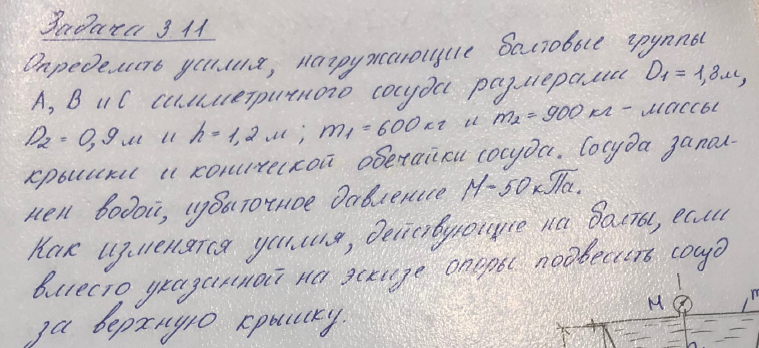 Задача 3.11
Определить усилия, нагружающие болтовые группы
А, В и С симметричного сосуда размерами D₁=1,8м,
D₂=0,9м и h=1,2м; m₁=600кг и m₂=900кг - массы
крышки и конической обечайки сосуда. Сосуда запол-
нен водой, избыточное давление М=50кПа.
Как изменятся усилия, действующие на болты, если
вместо указанной на эскизе опоры подвесить сосуд
за верхнюю крышку.
М
m